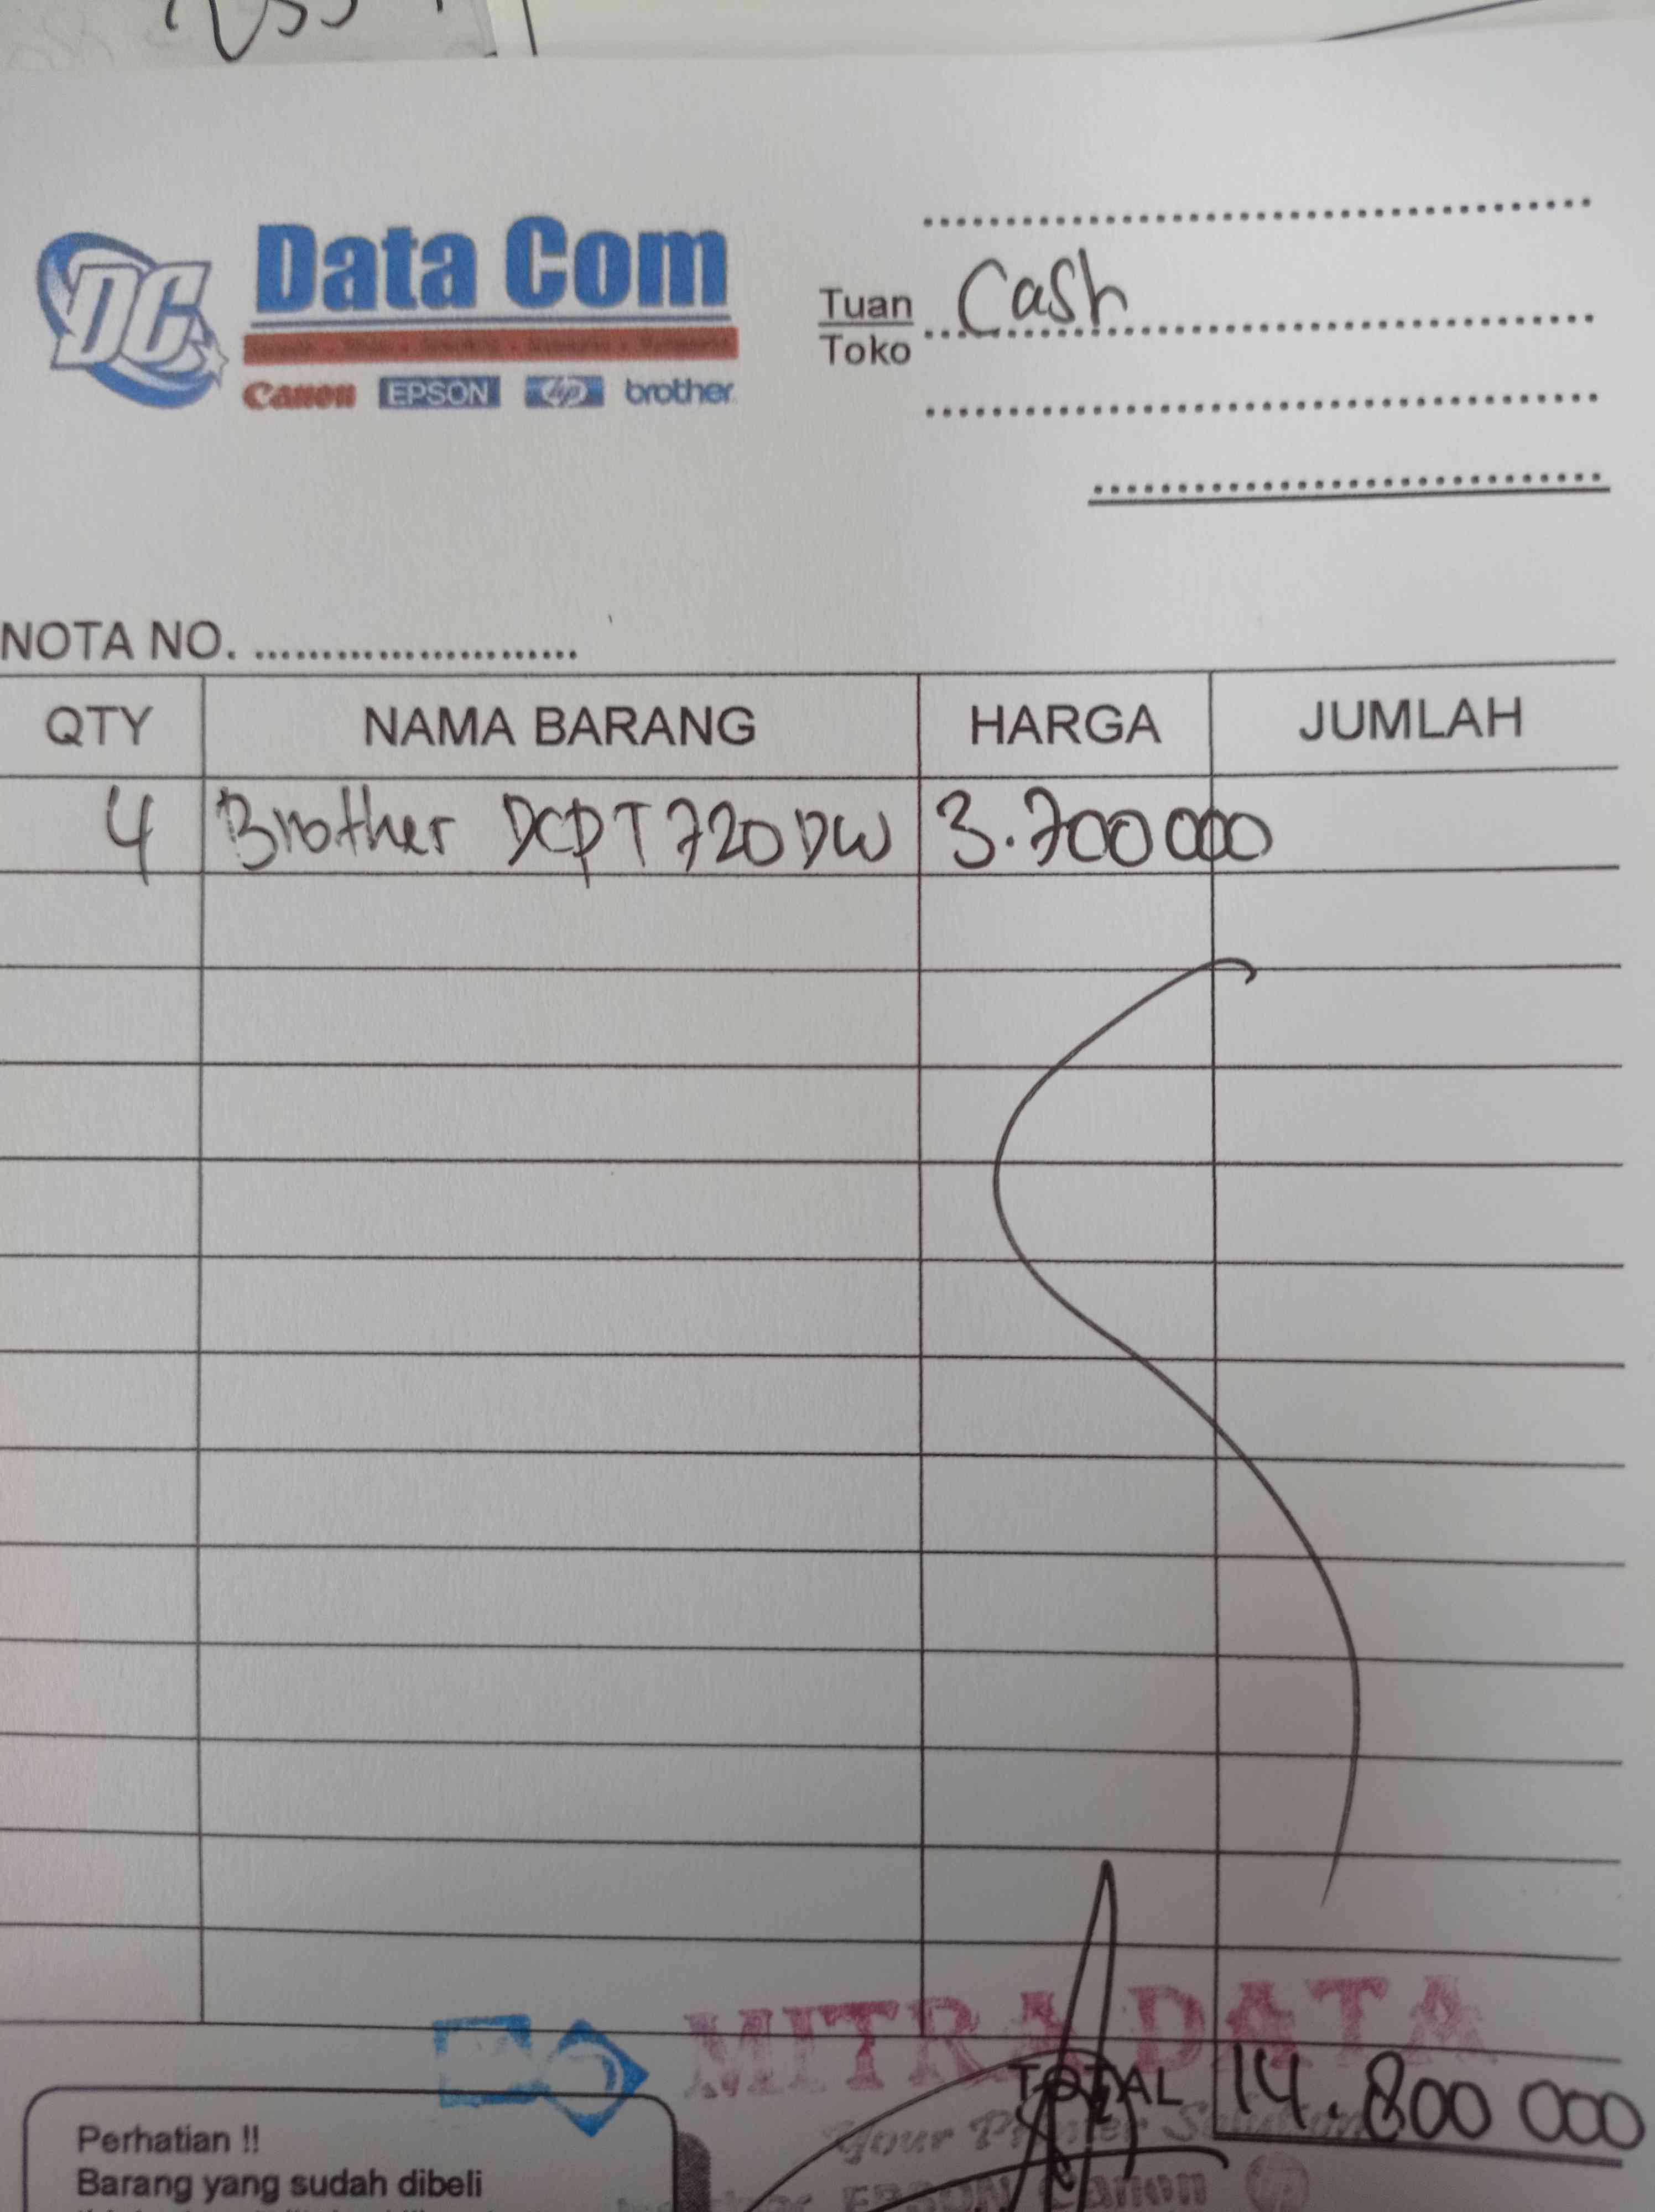 Data Com
Canon EPSON hp brother
Tuan Cash
Toko
NOTA NO. ........................
QTY NAMA BARANG HARGA JUMLAH
4 Brother DCPT720DW 3.700000
MITRA DATA
TOTAL 14.800 000
Your Printer Solution
EPSON Canon hp
Perhatian !!
Barang yang sudah dibeli